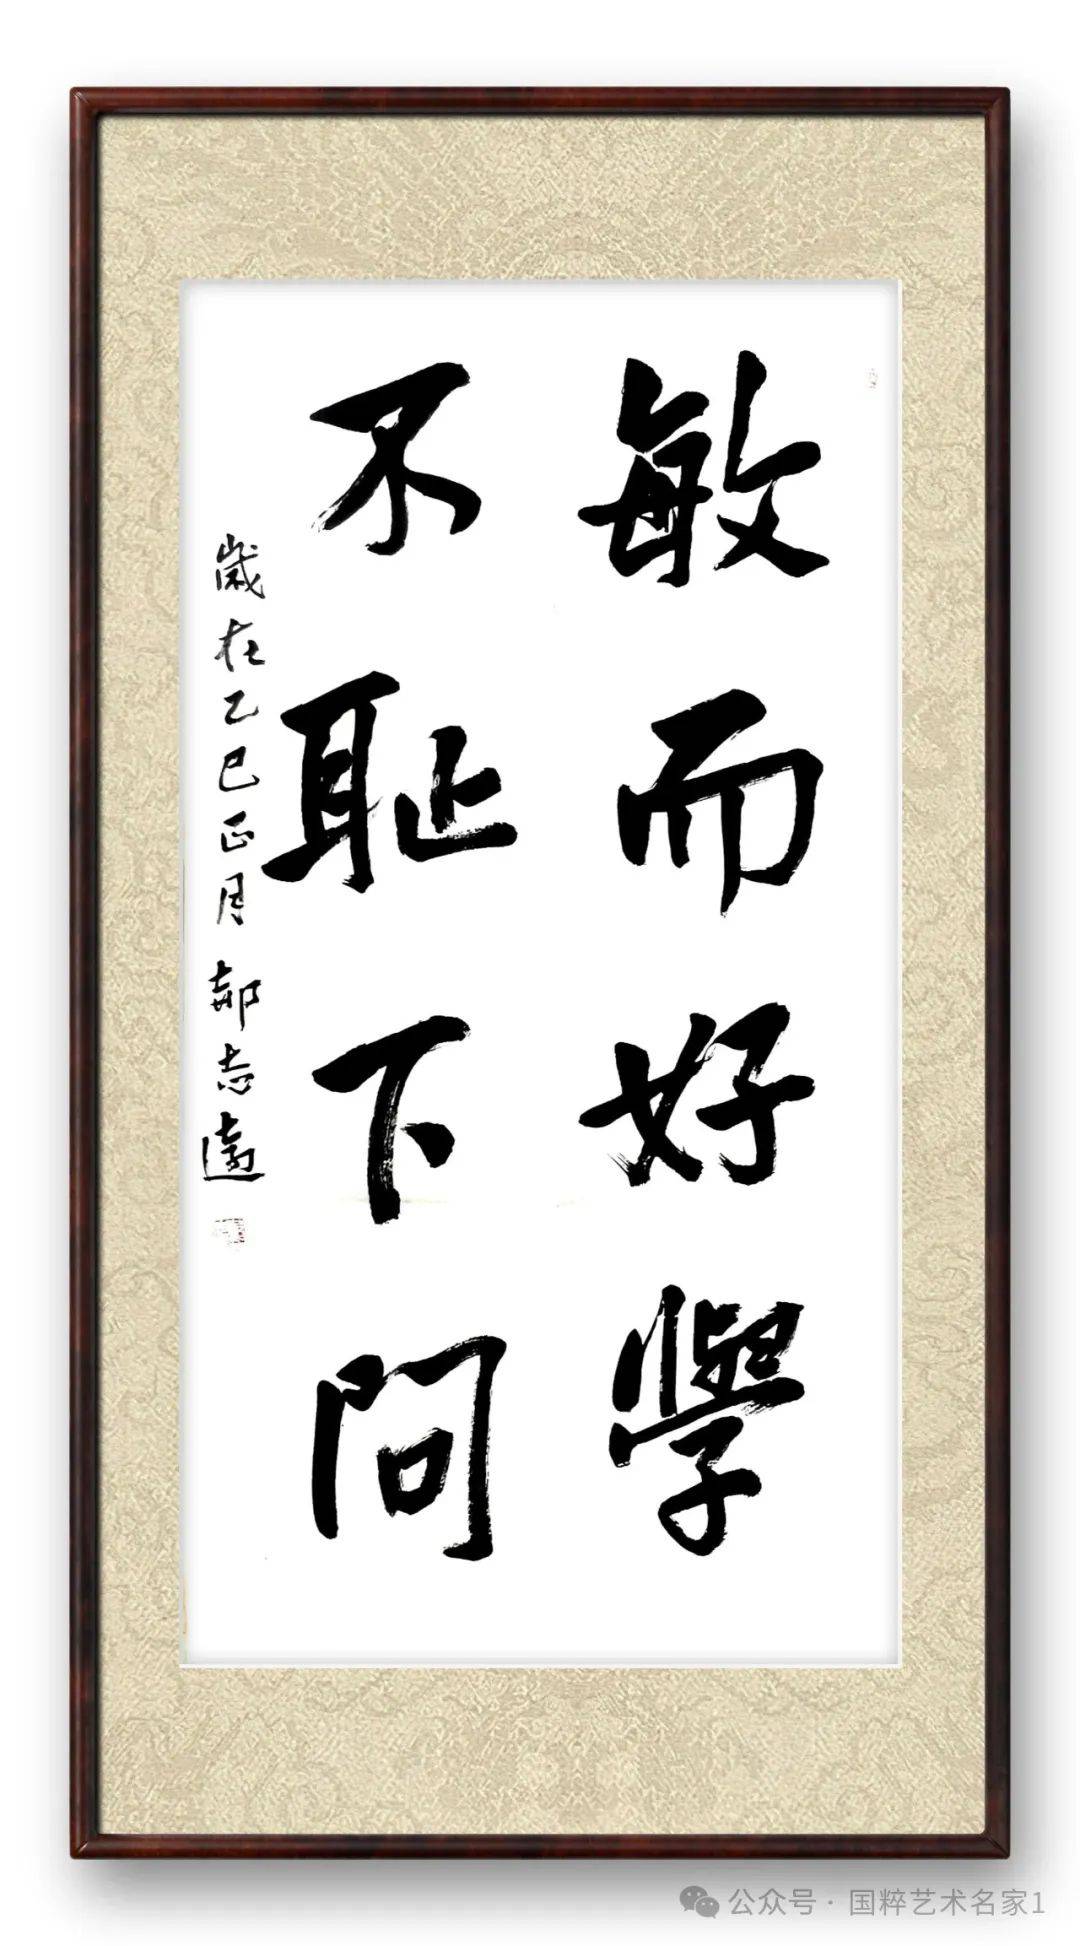 敏而好學
不耻下問
歲在乙巳正月郝志遠
公众号·国粹艺术名家1